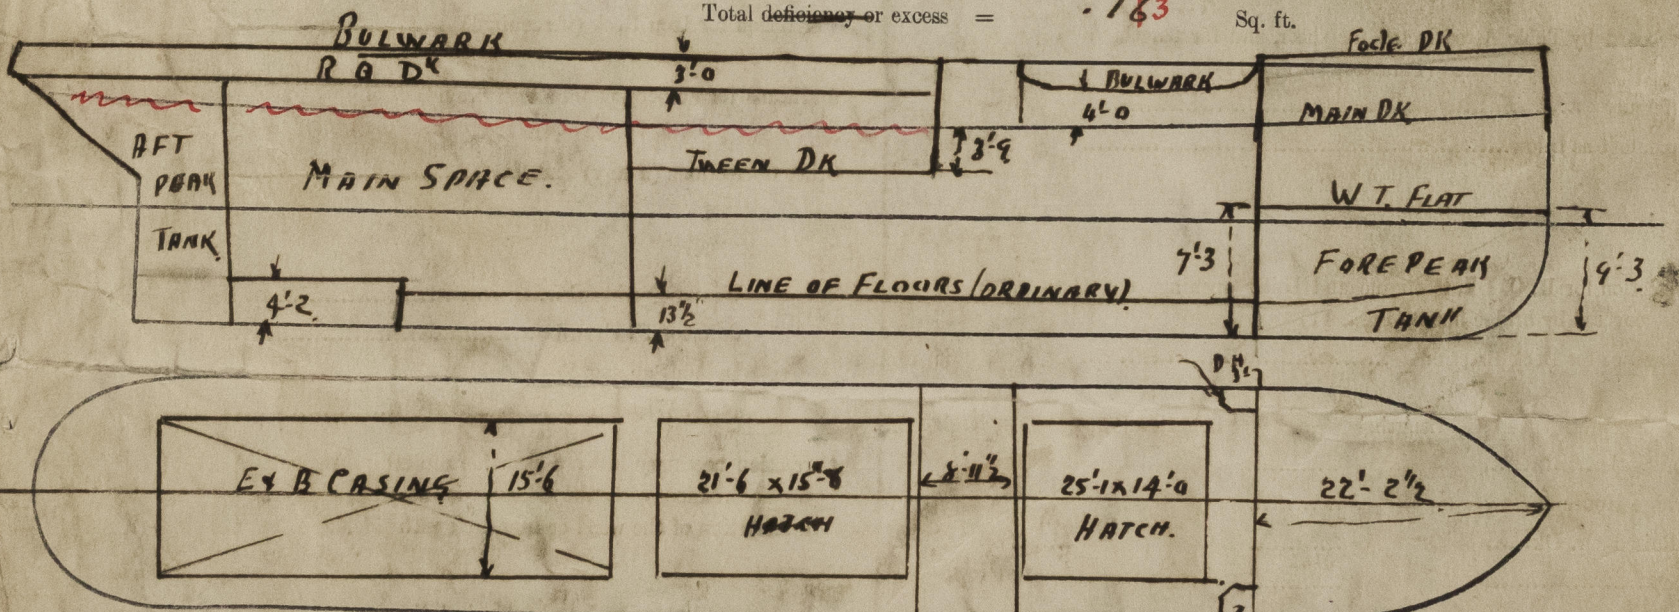 Total deficiency or excess = .163 Sq. ft.
BULWARK
R Q DK
3'-0
BULWARK
4'-0
Focle DK
MAIN DK
AFT
PEAK
TANK
MAIN SPACE.
TWEEN DK
3'-9
W T. FLAT
7'-3
FOREPEAK
TANK
9'-3.
4'-2.
LINE OF FLOORS (ORDINARY)
13½
D H
E & B CASING
15'-6
21'-6 x 15'-8
HATCH
8'-11½
25'-1 x 14'-0
HATCH.
22'- 2½